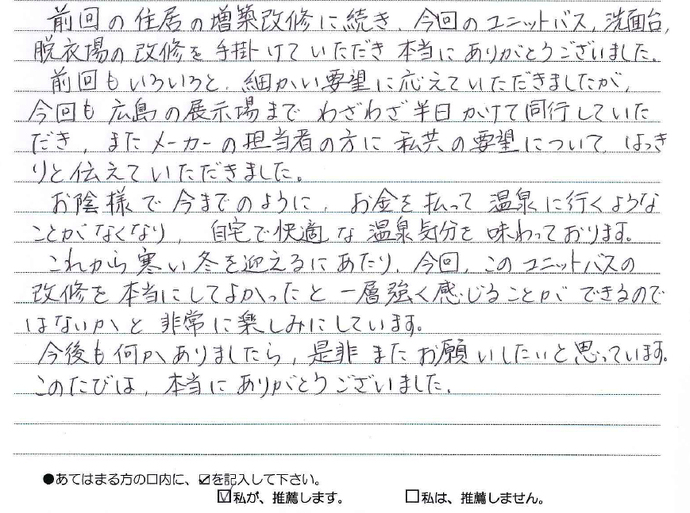 前回の住居の増築改修に続き、今回のユニットバス、洗面台、
脱衣場の改修を手掛けていただき本当にありがとうございました。
前回もいろいろと、細かい要望に応えていただきましたが、
今回も広島の展示場までわざわざ半日かけて同行していた
だき、またメーカーの担当者の方に私共の要望について、はっき
りと伝えていただきました。
お陰様で今までのように、お金を払って温泉に行くような
ことがなくなり、自宅で快適な温泉気分を味わっております。
これから寒い冬を迎えるにあたり、今回、このユニットバスの
改修を本当にしてよかったと一層強く感じることができるので
はないかと非常に楽しみにしています。
今後も何かありましたら、是非またお願いしたいと思っています。
このたびは、本当にありがとうございました。
●あてはまる方の口内に、☑を記入して下さい。
☑私が、推薦します。 □私は、推薦しません。